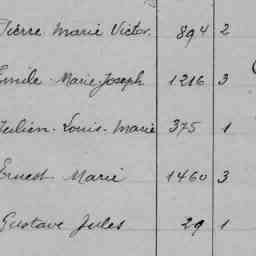 Pierre Marie Victor. 894 2
Emile Marie-Joseph 1216 3
Julien-Louis-Marie 375 1
Ernest Marie 1460 3
Gustave Jules 29 1